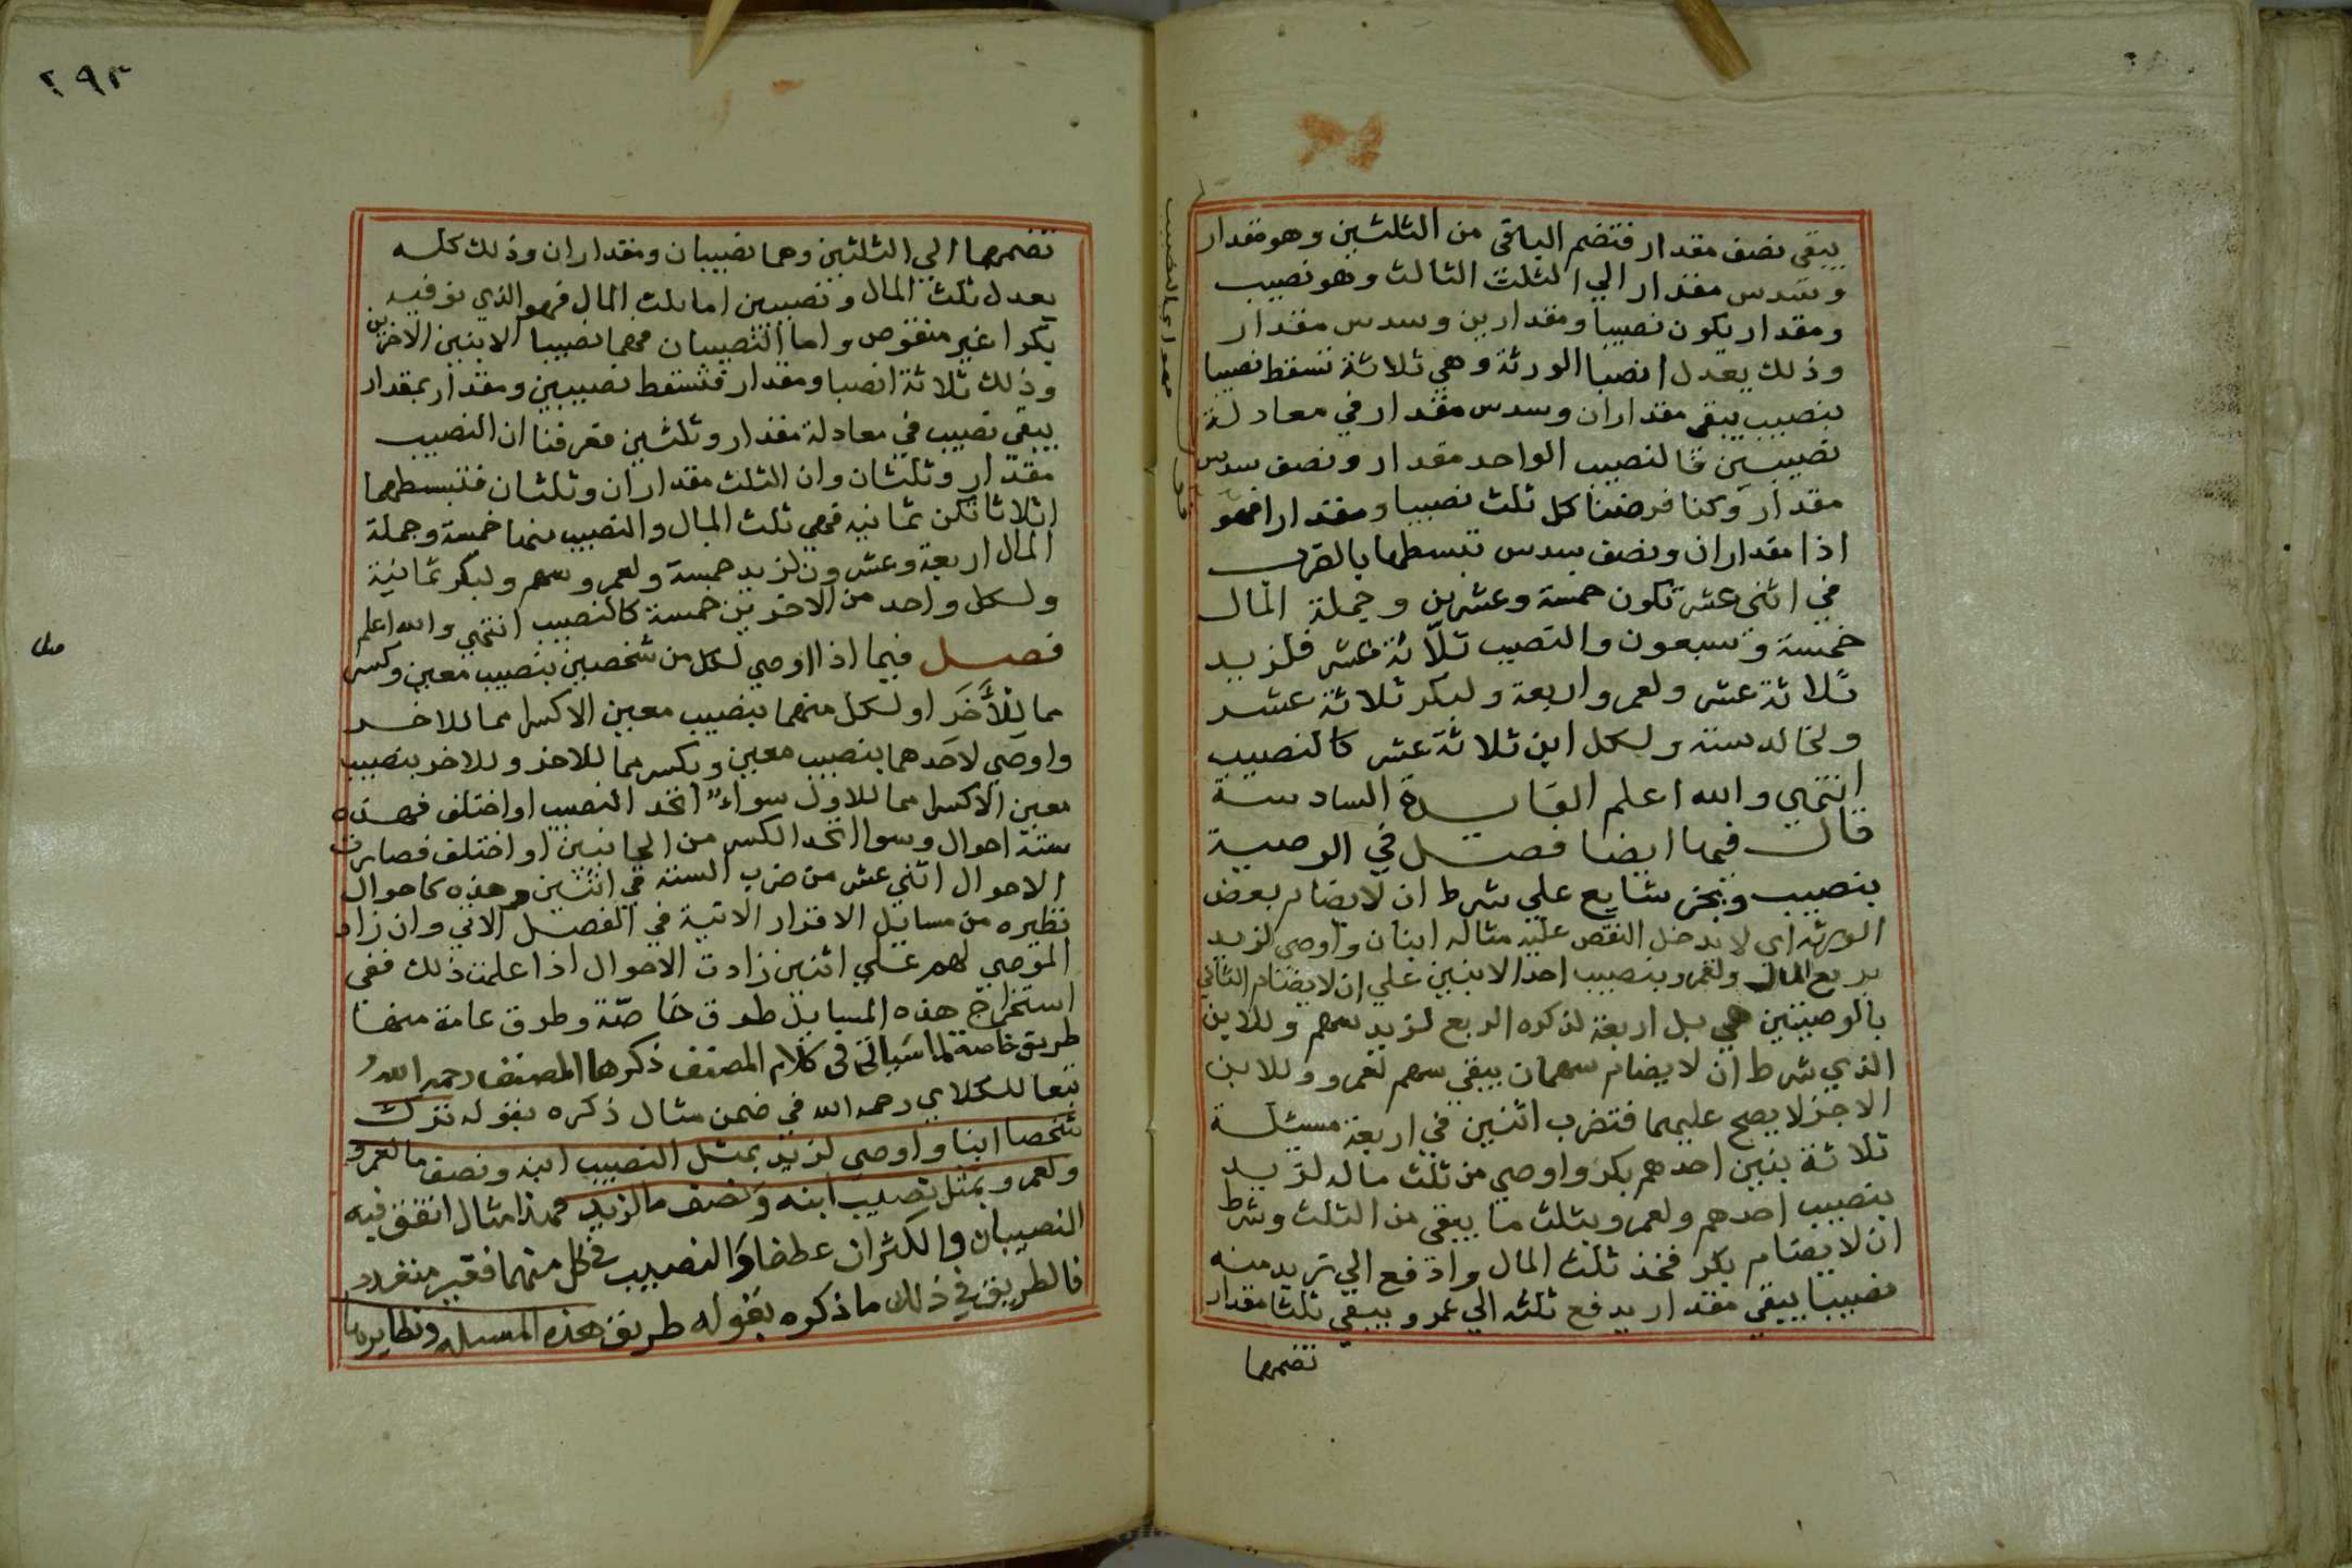 يبقى نصف مقدار فتضم الباقي من الثلثين وهو مقدار
وسدس مقدار الي الثلث الثالث وهو نصيب
ومقدار يكون نصيبا ومقدارين وسدس مقدار
وذلك يعدل انصبا الورثة وهي ثلاثة تسقط نصيبا
بنصيب يبقى مقداران وسدس مقدار في معادلة
نصيبين فالنصيب الواحد مقدار ونصف سدس
مقدار وكنا فرضنا كل ثلث نصيبا ومقدارا فهو
اذا مقداران ونصف سدس تبسطها بالضرب
في اثنى عشر تكون خمسة وعشرين وجملة المال
خمسة وسبعون والنصيب ثلاثة عشر فلزيد
ثلاثة عشر ولعمرو اربعة ولبكر ثلاثة عشر
ولخالد ستة ولكل ابن ثلاثة عشر كالنصيب
انتهي والله اعلم الفايدة السادسة
قال فيها ايضا فصل في الوصية
بنصيب وبجزء شايع علي شرط ان لا يضام بعض
الورثة اي لا يدخل النقص عليه مثاله ابنان واوصى لزيد
بربع المال ولعمرو بنصيب احد الابنين علي ان لا يضام الثاني
بالوصيتين هي بل اربعة لذكره الربع لزيد سهم وللابن
الذي شرط ان لا يضام سهمان يبقي سهم لعمرو وللابن
الاخر لا يصح عليهما فتضرب اثنين في اربعة مسئلة
ثلاثة بنين احدهم بكر واوصي من ثلث ماله لزيد
بنصيب احدهم ولعمرو بثلث ما يبقي من الثلث وشرط
ان لا يضام بكر فخذ ثلث المال وادفع الي زيد منه
نصيبا يبقي مقدار يدفع ثلثه الي عمرو ويبقي ثلثا مقدار
تضمها
٢٩٣
تضمها الي الثلثين وهما نصيبان ومقداران وذلك كله
يعدل ثلث المال ونصيبين اما ثلث المال فهو الذي نوفيه
بكرا غير منقوص واما النصيبان فهما نصيبا الابنين الاخرين
وذلك ثلاثة انصبا ومقدار فتسقط نصيبين ومقدار بمقدار
يبقي نصيب في معادلة مقدار وثلثين فعرفنا ان النصيب
مقدار وثلثان وان الثلث مقداران وثلثان فتبسطها
اثلاثا تكن ثمانيه فهي ثلث المال والنصيب منها خمسة وجملة
المال اربعة وعشرون لزيد خمسة ولعمرو سهم ولبكر ثمانية
ولكل واحد من الاخرين خمسة كالنصيب انتهي والله اعلم
فصل فيما اذا اوصي لكل من شخصين بنصيب معين وكسر
مما للأخر او لكل منهما بنصيب معين الا كسرا مما للاخر
واوصي لاحدهما بنصيب معين وبكسر مما للاخر وللاخر بنصيب
معين الا كسرا مما للاول سواء اتحد النصيب او اختلف فهذه
ستة احوال وسوا اتحد الكسر من الجانبين او اختلف فصارت
الاحوال اثني عشر من ضرب الستة في اثنين وهذه كاحوال
نظيره من مسايل الاقرار الاتية في الفصل الاتي وان زاد
الموصي لهم علي اثنين زادت الاحوال اذا علمت ذلك ففى
استخراج هذه المسايل طرق خاصة وطرق عامة منها
طريق خاصة لما سياتى فى كلام المصنف ذكرها المصنف رحمه الله
تبعا للكلاي رحمه الله في ضمن مثال ذكره بقوله ترك
شخصا ابنا واوصى لزيد بمثل النصيب ابنه ونصف ما لعمرو
ولعمرو بمثل نصيب ابنه ونصف ما لزيد فهذا مثال اتفق فيه
النصيبان والكسران عطفا والنصيب في كل منهما فقير منفرد
فالطريق في ذلك ما ذكره بقوله طريق هذه المسئله ونظايرها